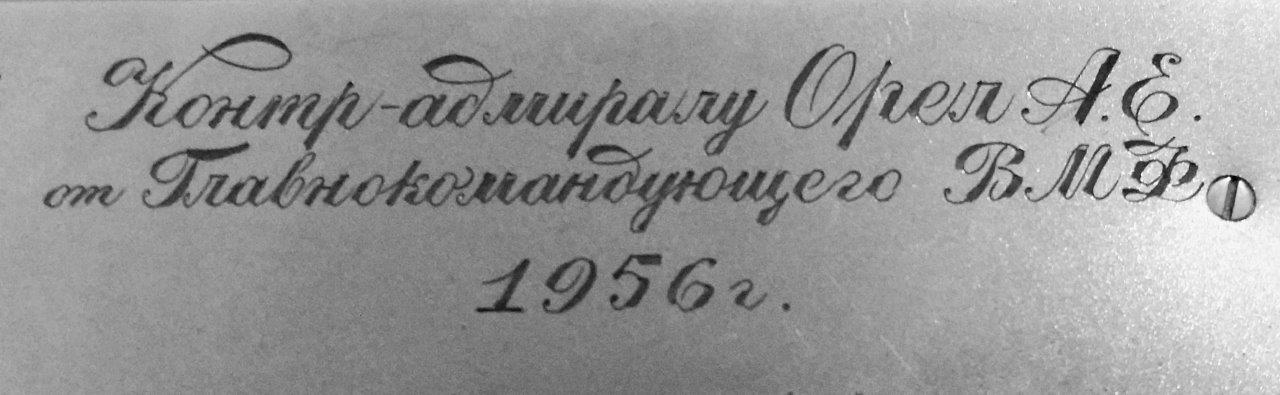 Контр-адмиралу Орел А.Е.
от Главнокомандующего ВМФ
1956г.